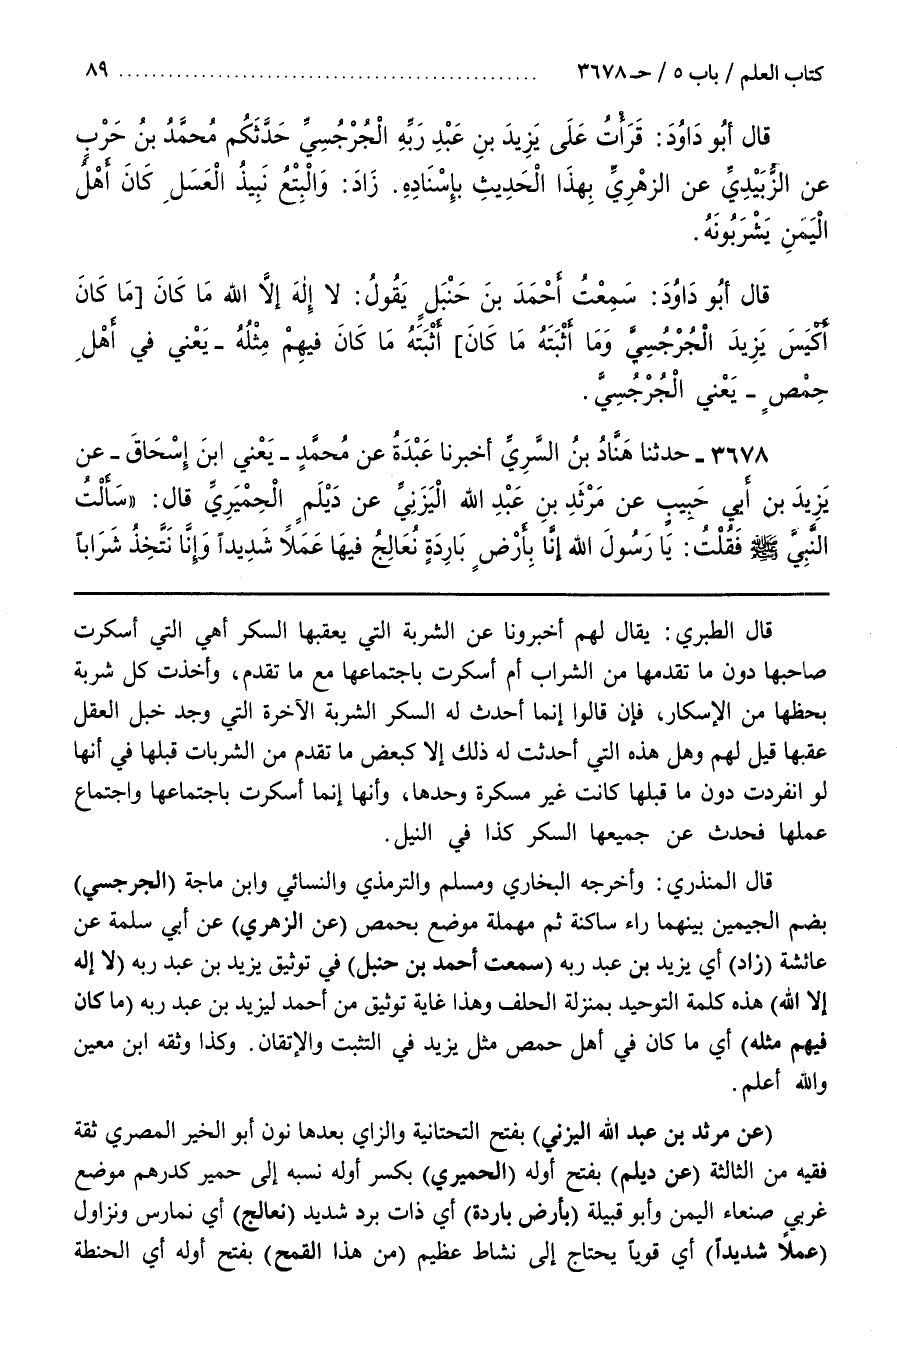 كتاب العلم / باب ٥ / حـ ٣٦٧٨ ................................................ ٨٩
قال أبُو دَاوُدَ: قَرَأْتُ عَلَى يَزِيدَ بنِ عَبْدِ رَبِّهِ الْجُرْجُسِيِّ حَدَّثَكُم مُحمَّدُ بنُ حَرْبٍ
عن الزُّبَيْدِيِّ عن الزهْرِيِّ بِهذَا الْحَدِيثِ بإسْنَادِهِ. زَادَ: وَالْبِتْعُ نَبِيذُ الْعَسَلِ كَانَ أهْلُ
الْيَمَنِ يَشْرَبُونَهُ.
قال أبُو دَاوُدَ: سَمِعْتُ أَحْمَدَ بنَ حَنْبَلٍ يَقُولُ: لا إلٰهَ إلَّا الله مَا كَانَ [مَا كَانَ
أكْيَسَ يَزِيدَ الْجُرْجُسِيَّ وَمَا أثْبَتَهُ مَا كَانَ] أثْبَتَهُ مَا كَانَ فيهِمْ مِثْلُهُ ـ يَعْني في أهْلِ
حِمْصٍ ـ يَعْني الْجُرْجُسِيَّ.
٣٦٧٨ ـ حدثنا هَنَّادُ بنُ السَّرِيِّ أخبرنا عَبْدَةُ عن مُحمَّدٍ ـ يَعْني ابنَ إسْحَاقَ ـ عن
يَزِيدَ بن أبي حَبِيبٍ عن مَرْثَدِ بنِ عَبْدِ الله الْيَزَنِيِّ عن دَيْلَمٍ الْحِمْيَرِيِّ قال: «سَألْتُ
النَّبِيَّ ﷺ فَقُلْتُ: يَا رَسُولَ الله إنَّا بِأرْضٍ بَارِدَةٍ نُعَالِجُ فيهَا عَمَلًا شَدِيداً وَإنَّا نَتَّخِذُ شَرَاباً
قال الطبري: يقال لهم أخبرونا عن الشربة التي يعقبها السكر أهي التي أسكرت
صاحبها دون ما تقدمها من الشراب أم أسكرت باجتماعها مع ما تقدم، وأخذت كل شربة
بحظها من الإسكار، فإن قالوا إنما أحدث له السكر الشربة الآخرة التي وجد خبل العقل
عقبها قيل لهم وهل هذه التي أحدثت له ذلك إلا كبعض ما تقدم من الشربات قبلها في أنها
لو انفردت دون ما قبلها كانت غير مسكرة وحدها، وأنها إنما أسكرت باجتماعها واجتماع
عملها فحدث عن جميعها السكر كذا في النيل.
قال المنذري: وأخرجه البخاري ومسلم والترمذي والنسائي وابن ماجة (الجرجسي)
بضم الجيمين بينهما راء ساكنة ثم مهملة موضع بحمص (عن الزهري) عن أبي سلمة عن
عائشة (زاد) أي يزيد بن عبد ربه (سمعت أحمد بن حنبل) في توثيق يزيد بن عبد ربه (لا إله
إلا الله) هذه كلمة التوحيد بمنزلة الحلف وهذا غاية توثيق من أحمد ليزيد بن عبد ربه (ما كان
فيهم مثله) أي ما كان في أهل حمص مثل يزيد في التثبت والإتقان. وكذا وثقه ابن معين
والله أعلم.
(عن مرثد بن عبد الله اليزني) بفتح التحتانية والزاي بعدها نون أبو الخير المصري ثقة
فقيه من الثالثة (عن ديلم) بفتح أوله (الحميري) بكسر أوله نسبه إلى حمير كدرهم موضع
غربي صنعاء اليمن وأبو قبيلة (بأرض باردة) أي ذات برد شديد (نعالج) أي نمارس ونزاول
(عملًا شديداً) أي قوياً يحتاج إلى نشاط عظيم (من هذا القمح) بفتح أوله أي الحنطة